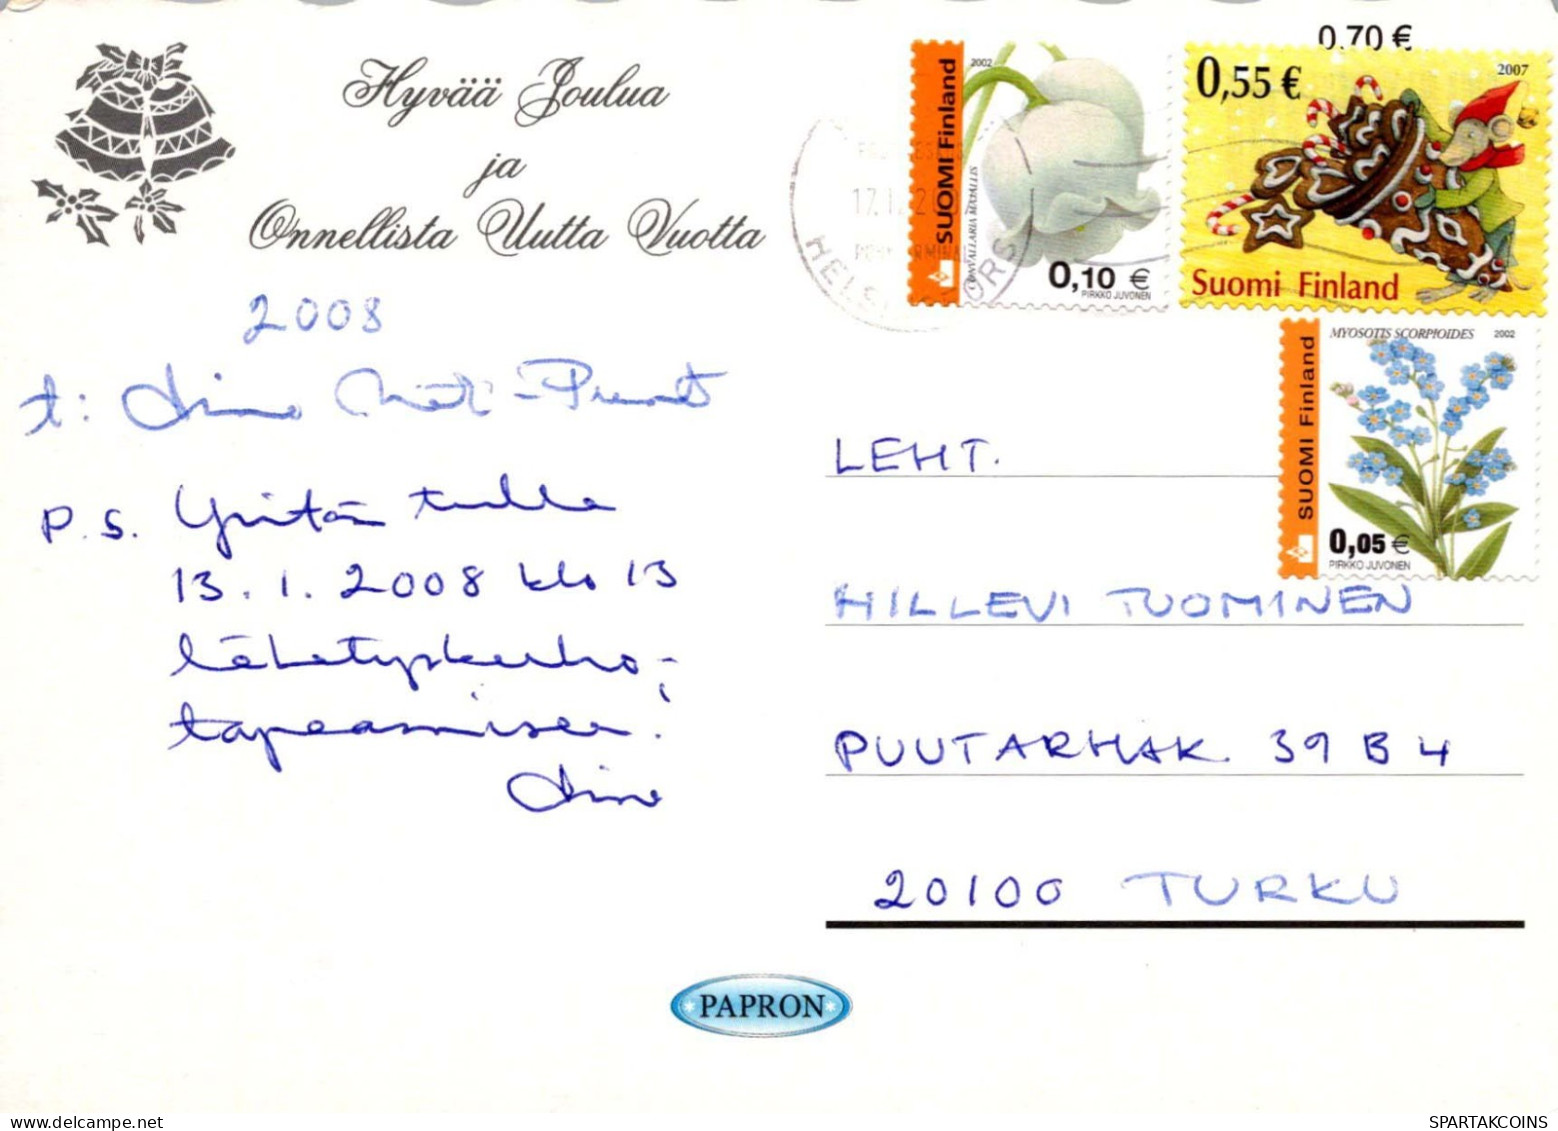 Hyvää Joulua
ja
Onnellista Uutta Vuotta
2008
t: Aino
P.S. Yritän tulla
13.1.2008 klo 13
lähetyskerho-
tapaamiseen.
Aino
0.70 €
2002
SUOMI Finland
CONVALLARIA MAJALIS
0,10 €
PIRKKO JUVONEN
0,55 €
2007
Suomi Finland
MYOSOTIS SCORPIOIDES
2002
SUOMI Finland
0,05 €
PIRKKO JUVONEN
17.1.
LEHT.
HILLEVI TUOMINEN
PUUTARHAK. 39 B 4
20100 TURKU
PAPRON
SPARTAKCOINS